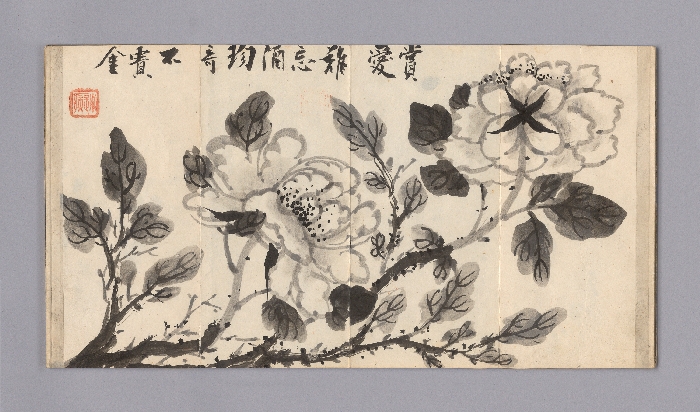 賞愛難忘酒珍奇不貴金